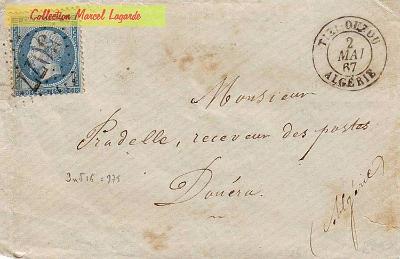 Collection Marcel Lagarde
TIZI-OUZOU
2
MAI
67
ALGÉRIE
Monsieur
Pradelle, receveur des postes
Douéra
(Algérie)